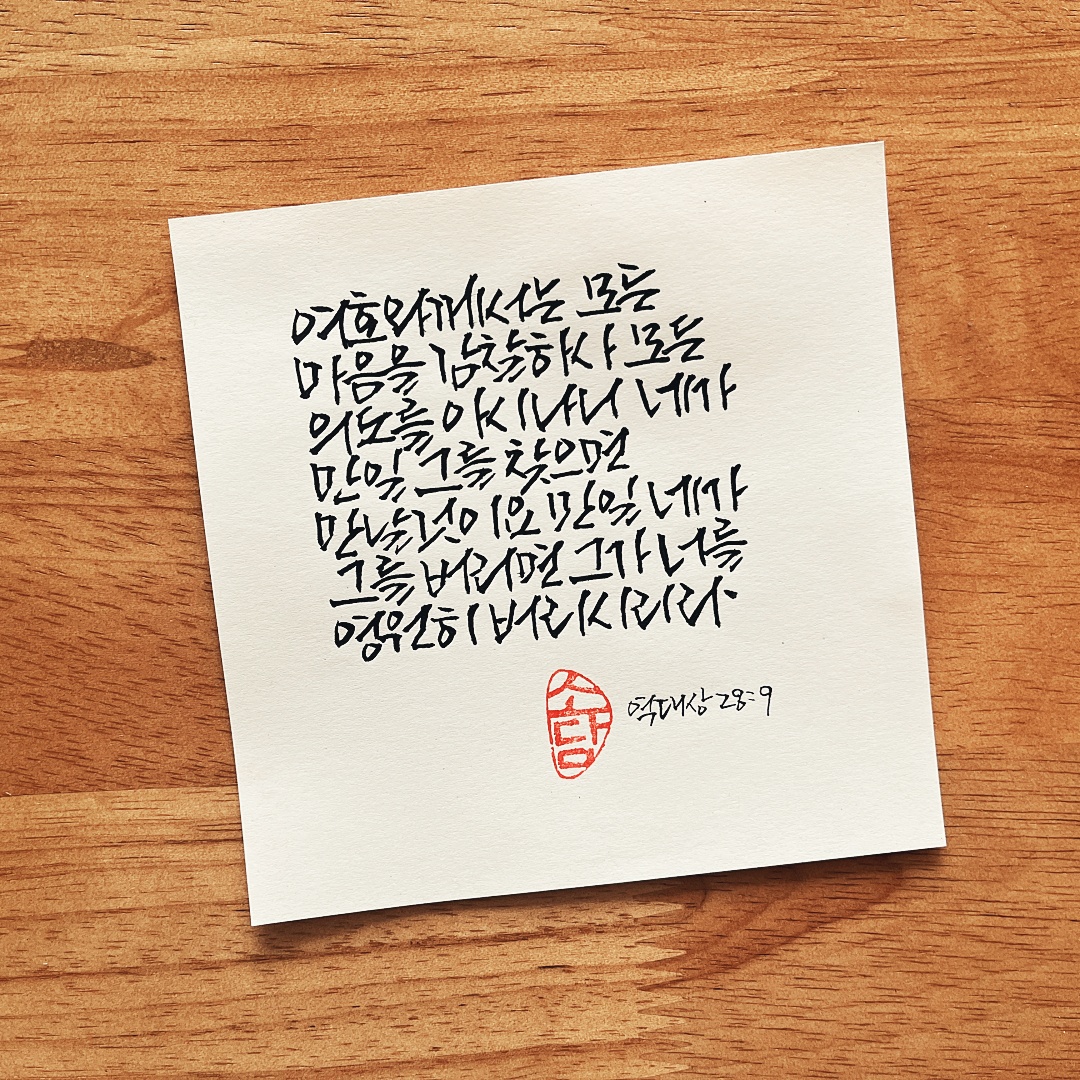 여호와께서는 모든
마음을 감찰하사 모든
의도를 아시나니 네가
만일 그를 찾으면
만날것이요 만일 네가
그를 버리면 그가 너를
영원히 버리시리라.
솜담
역대상 28:9